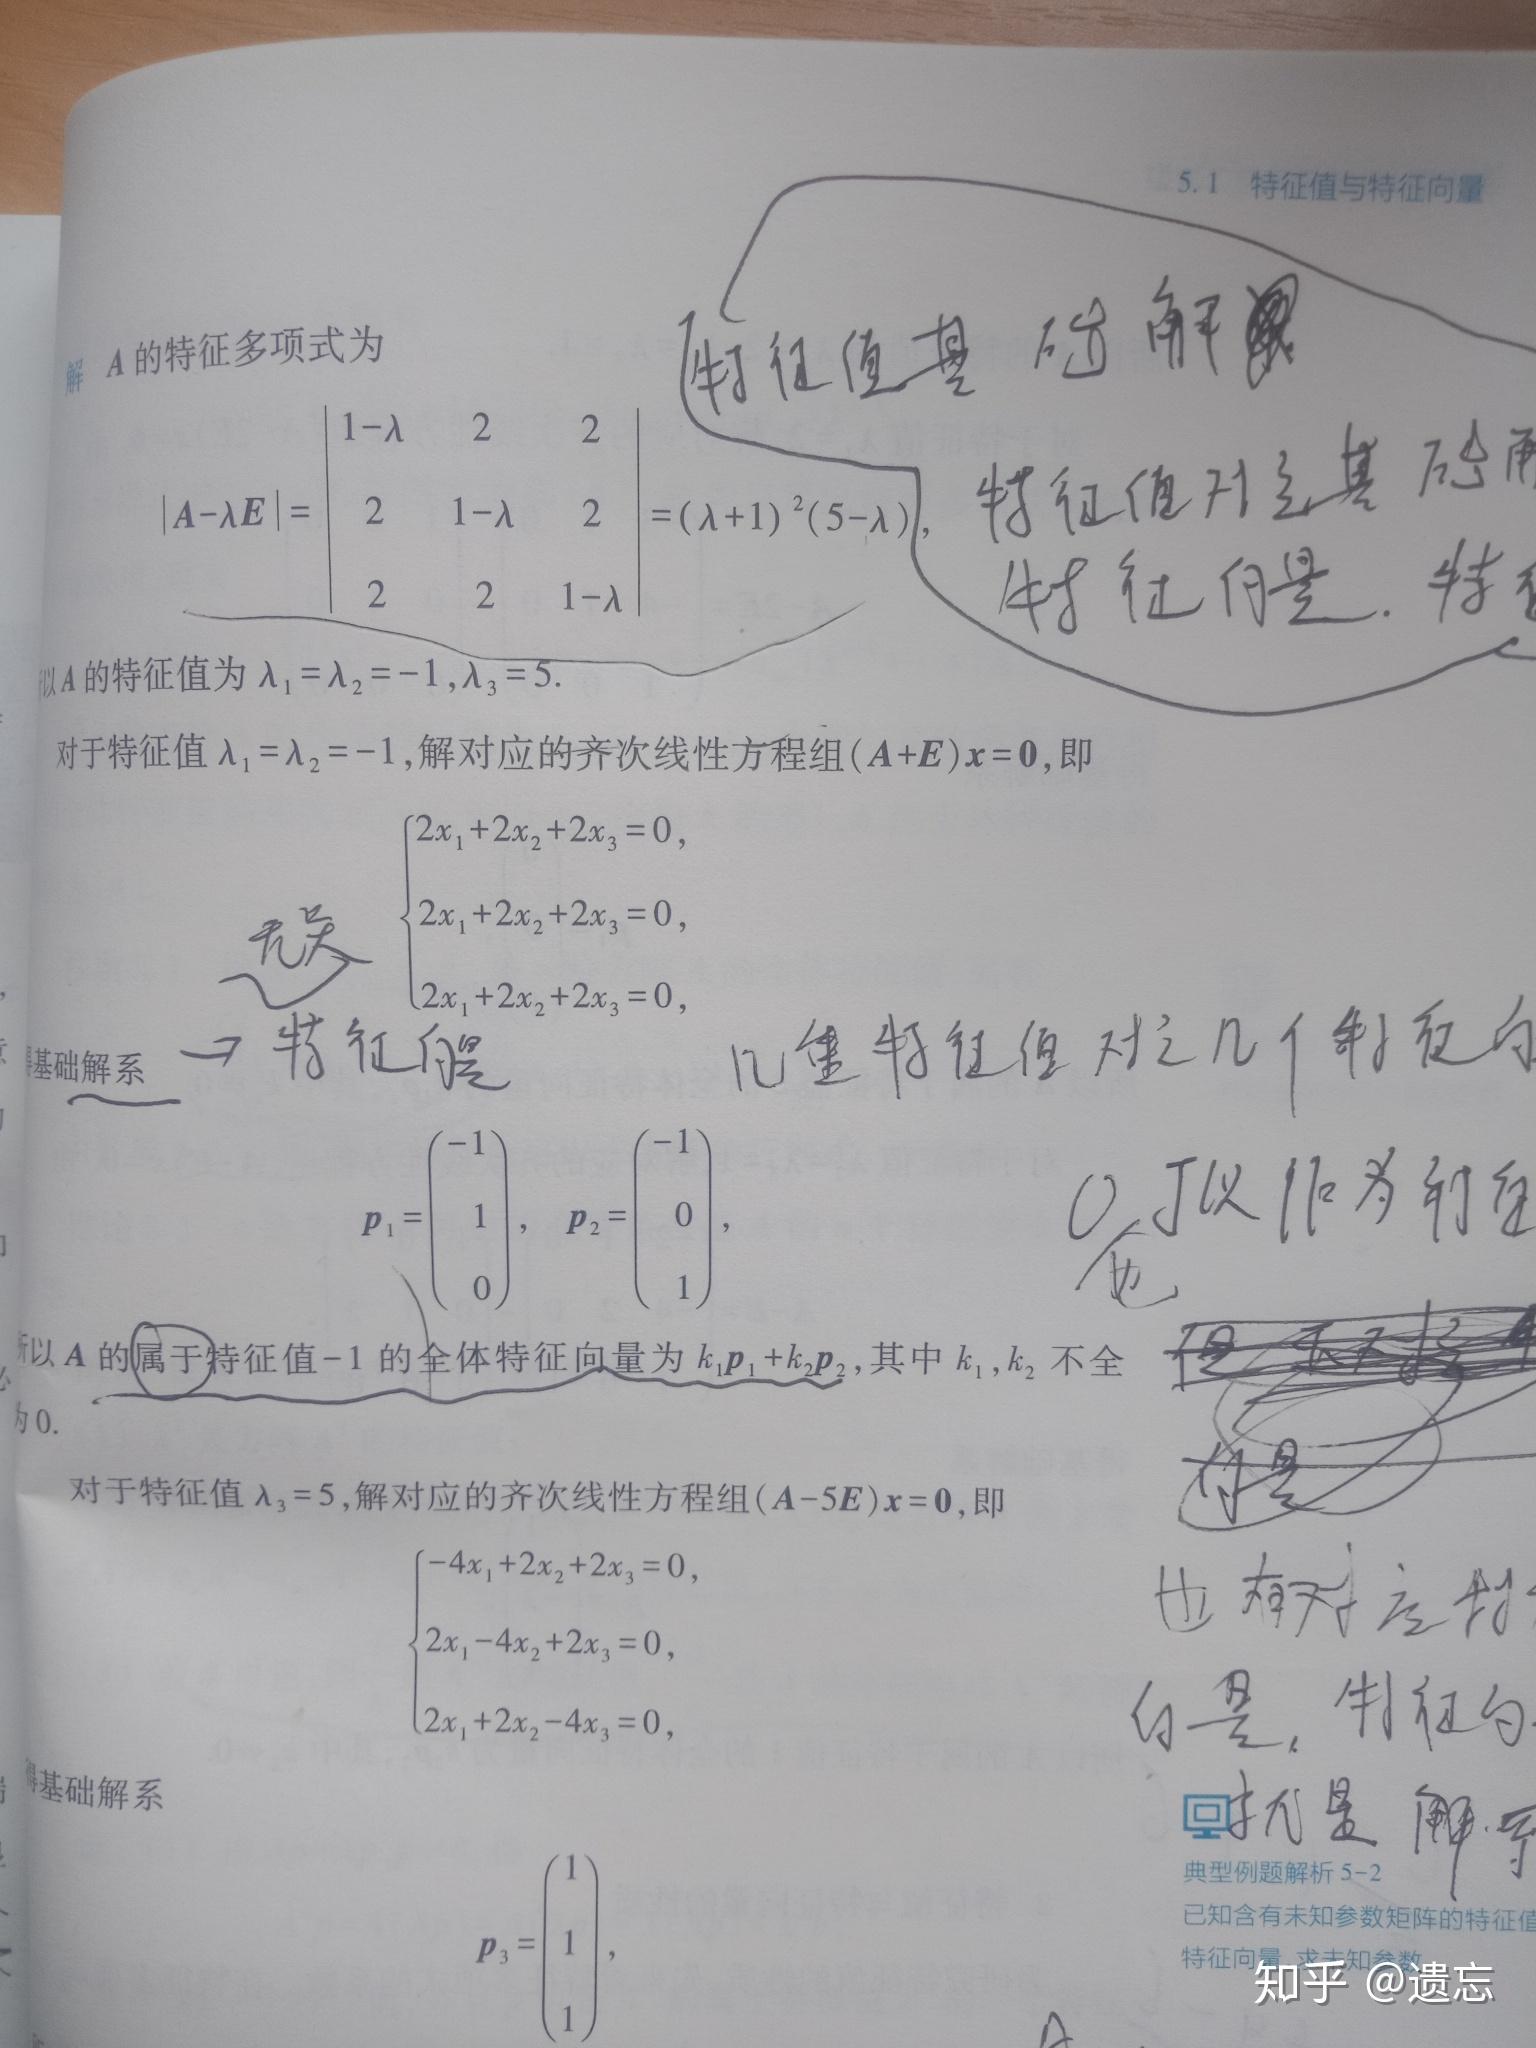 5.1 特征值与特征向量
特征值基础解
解 A的特征多项式为
特征值对应基础
|A-λE|= |1-λ 2 2
2 1-λ 2
2 2 1-λ| =(λ+1)²(5-λ),
特征向量. 特
以A的特征值为 λ₁=λ₂=-1,λ₃=5.
对于特征值 λ₁=λ₂=-1,解对应的齐次线性方程组(A+E)x=0,即
2x₁+2x₂+2x₃=0,
2x₁+2x₂+2x₃=0,
2x₁+2x₂+2x₃=0,
无关
得基础解系 → 特征向量
几重特征值对应几个特征向
p₁= (-1 1 0), p₂= (-1 0 1),
0 也可以作为特征
所以 A 的属于特征值-1 的全体特征向量为 k₁p₁+k₂p₂,其中 k₁,k₂ 不全
为0.
向量
对于特征值 λ₃=5,解对应的齐次线性方程组(A-5E)x=0,即
-4x₁+2x₂+2x₃=0,
2x₁-4x₂+2x₃=0,
2x₁+2x₂-4x₃=0,
也有对应特
向量,特征向
得基础解系
就是解
典型例题解析 5-2
已知含有未知参数矩阵的特征值
特征向量,求未知参数
p₃= (1 1 1),
知乎 @遗忘